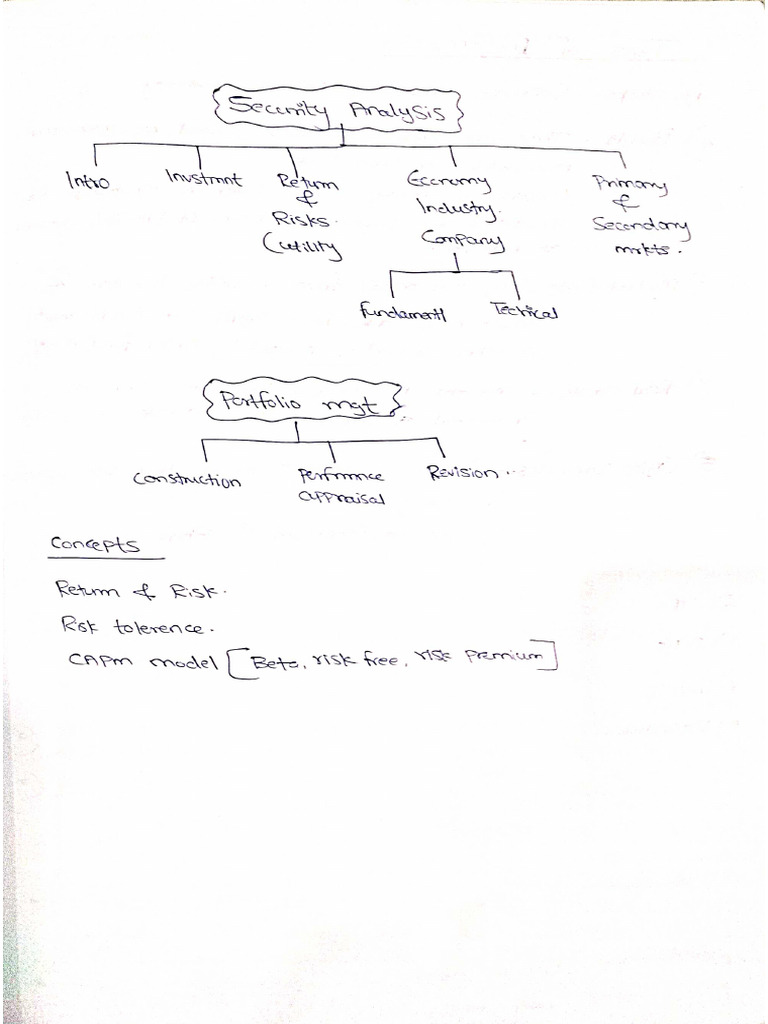 Security Analysis
Intro
Invstmnt
Return
&
Risks.
(utility
Economy
Industry.
Company
Primary
&
Secondary
mrkts.
Fundamentl
Techical
Portfolio mgt
Construction
Perfrmnce
appraisal
Revision.
Concepts
Return & Risk.
Risk tolerence.
CAPM model [Beta, risk free, risk premium]